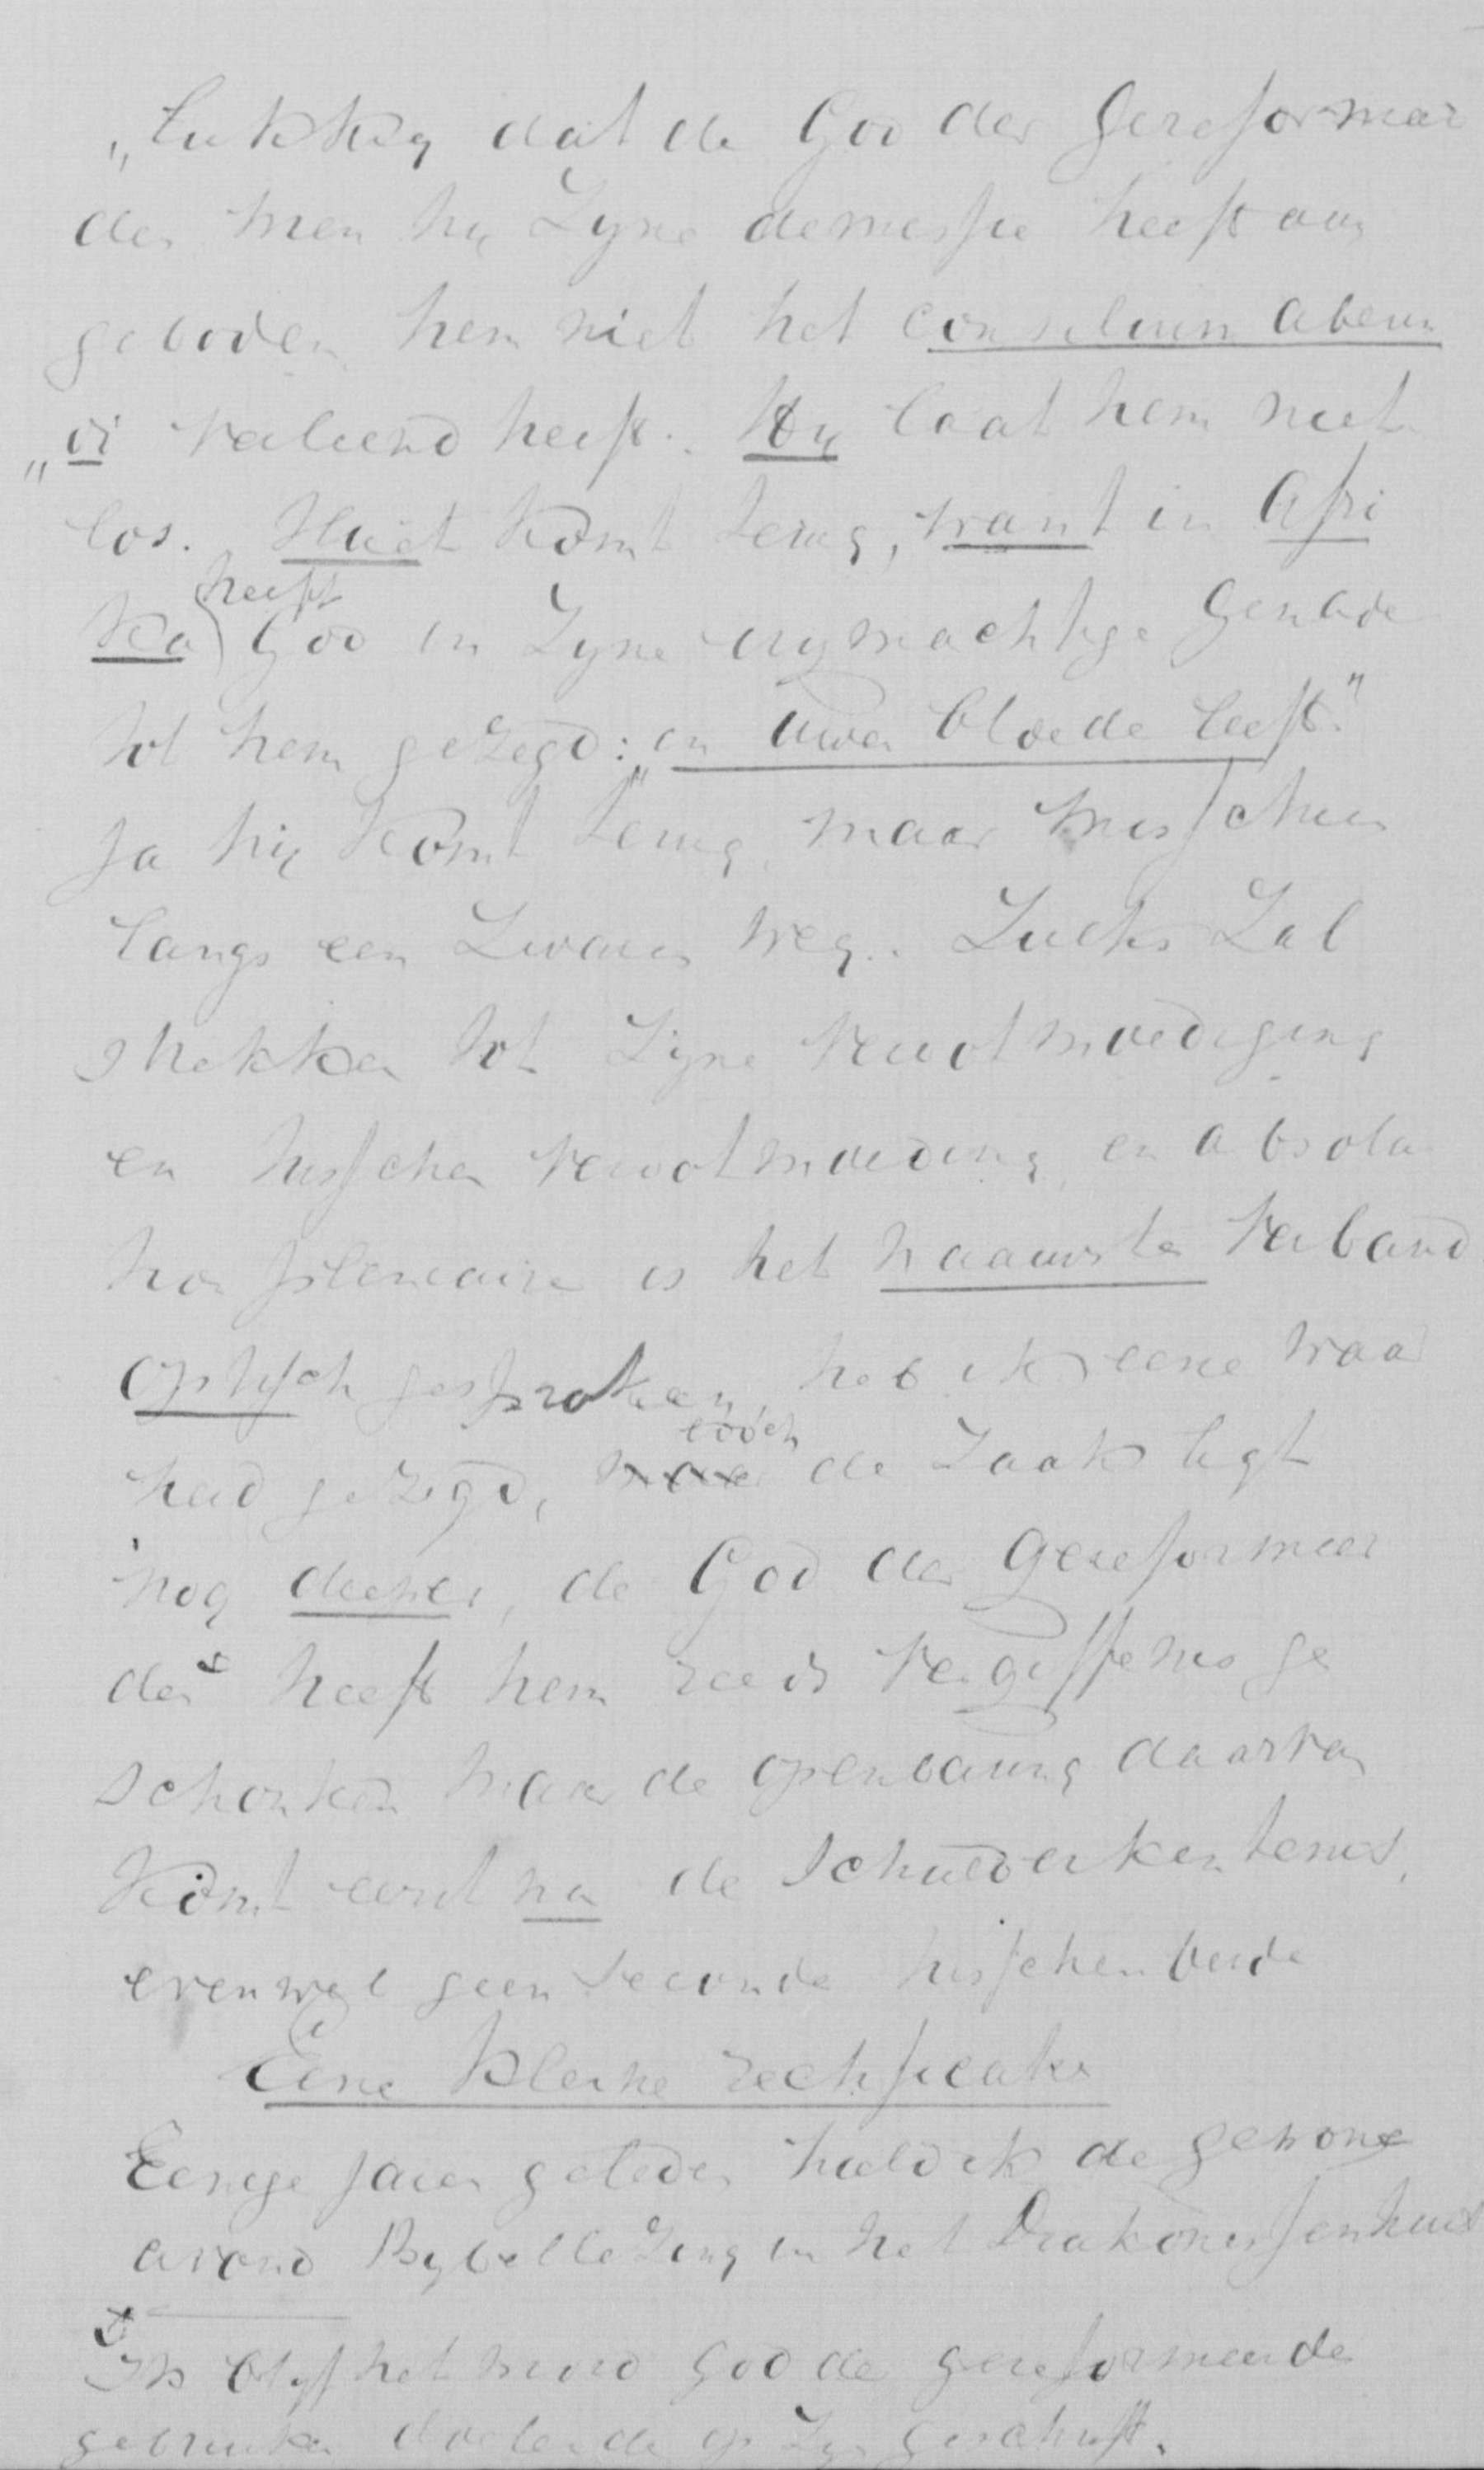 „lukkig dat de God der Gereformeer
den men hy Zyne demissie heeft aan
geboden hem niet het consilium abeun
„di verleend heeft. Hy laat hem niet
los. Huet komt terug, want in Afri
ka heeft God in Zyne vrymachtige Genade
tot hem gezegd: „in uwen bloede leeft."
Ja hij komt terug, maar misschien
langs een Zwaren weg. Zulks Zal
strekken tot Zijne verootmoediging
en tusschen verootmoediging en absolu
tion pleniaire is het naauwste verband
optisch gesproken, heb ik eene waar
heid gezegd, maar doch de Zaak ligt
nog dieper, de God der Gereformeer
den x heeft hem reeds vergiffenis ge
schonken maar de openbaring daarvan
komt eerst na de Schulderkentenis,
evenwel geen seconde tusschen beide
Eene kleine rectificatie
Eenige jaren geleden hield ik de gewone
avond Bybellezing in het Diakonessenhuis
x Ik blyf het woord God der gereformeerden
gebruiken doelende op Zyn geschrift.